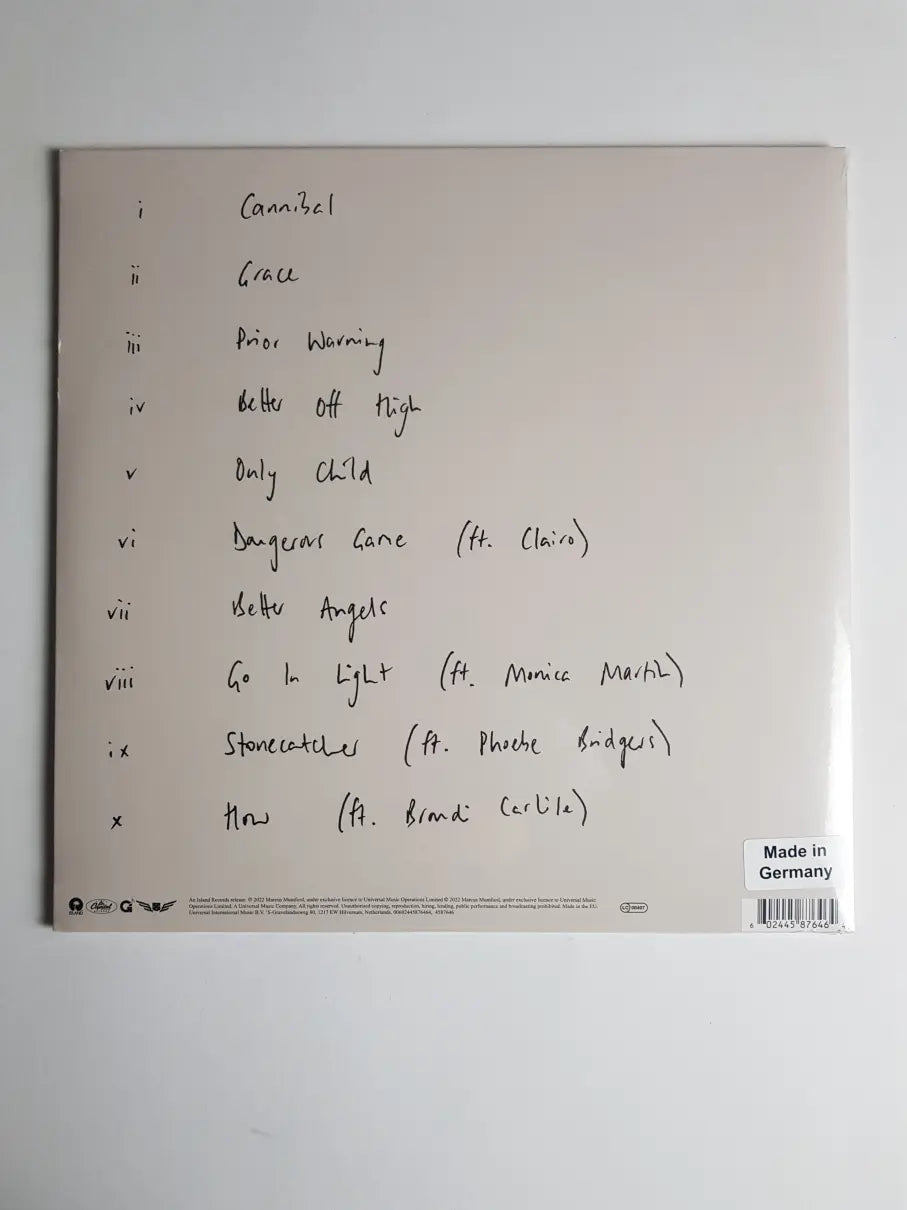 i Cannibal
ii Grace
iii Prior Warning
iv Better Off High
v Only Child
vi Dangerous Game (ft. Clairo)
vii Better Angels
viii Go In Light (ft. Monica Martin)
ix Stonecatcher (ft. Phoebe Bridgers)
x How (ft. Brandi Carlile)
Made in
Germany
ISLAND Capitol G
An Island Records release. ℗ 2022 Marcus Mumford, under exclusive licence to Universal Music Operations Limited © 2022 Marcus Mumford, under exclusive licence to Universal Music
Operations Limited. A Universal Music Company. All rights reserved. Unauthorised copying, reproduction, hiring, lending, public performance and broadcasting prohibited. Made in the EU.
Universal International Music B.V. 'S-Gravelandseweg 80, 1217 EW Hilversum, Netherlands. 00602445876464, 4587646
LC 00407
6 02445 87646 4